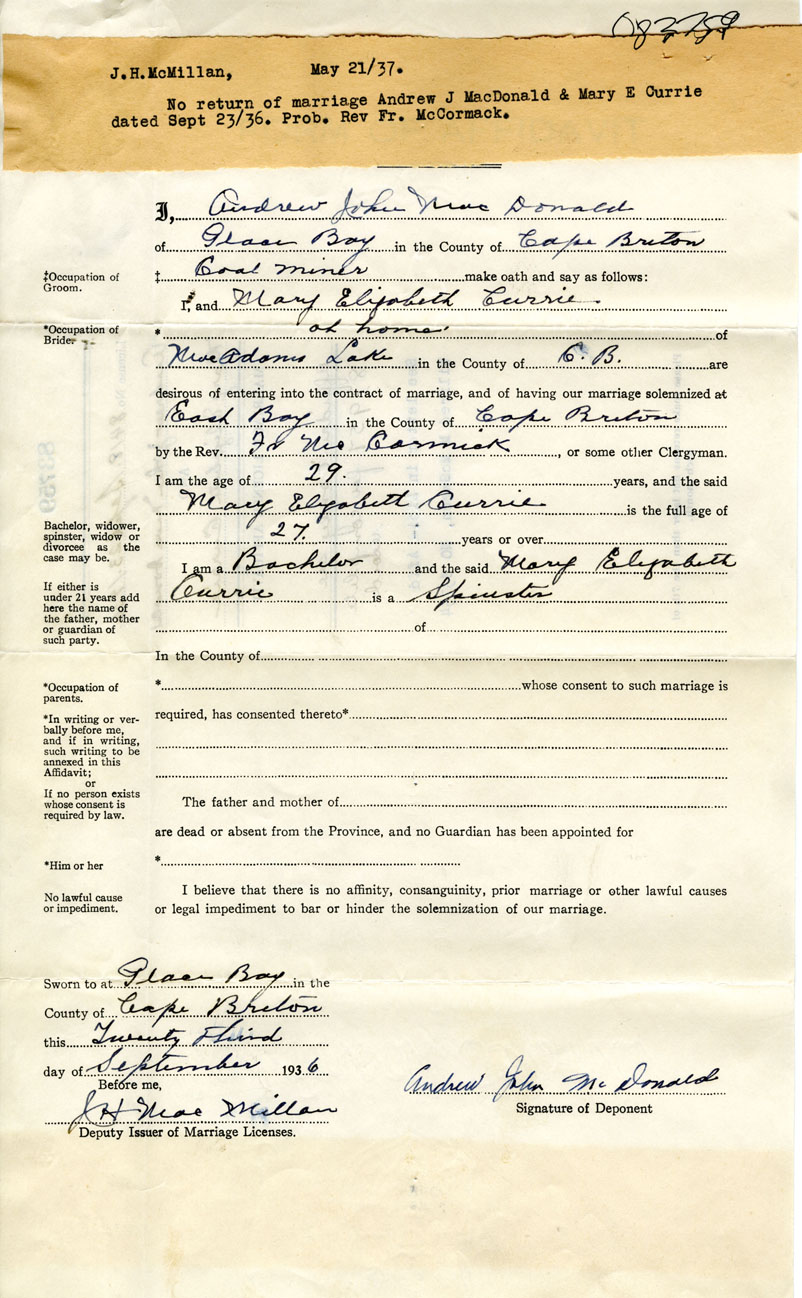 J.H.McMillan, May 21/37.
No return of marriage Andrew J MacDonald & Mary E Currie
dated Sept 23/36. Prob. Rev Fr. McCormack.
I, Andrew John Mac Donald
of Glace Bay in the County of Cape Breton
‡Occupation of Groom.
‡ Coal miner make oath and say as follows:
I, and Mary Elizabeth Currie
*Occupation of Bride.
* at home of
MacAdams Lake in the County of C. B. are
desirous of entering into the contract of marriage, and of having our marriage solemnized at
East Bay in the County of Cape Breton
by the Rev. Fr Mc Cormick, or some other Clergyman.
I am the age of 29. years, and the said
Mary Elizabeth Currie is the full age of
27. years or over
Bachelor, widower,
spinster, widow or
divorcee as the
case may be.
I am a Bachelor and the said Mary Elizabeth
Currie is a Spinster
If either is
under 21 years add
here the name of
the father, mother
or guardian of
such party.
of
In the County of
*Occupation of
parents.
* whose consent to such marriage is
required, has consented thereto*
*In writing or ver-
bally before me,
and if in writing,
such writing to be
annexed in this
Affidavit;
or
If no person exists
whose consent is
required by law.
The father and mother of
are dead or absent from the Province, and no Guardian has been appointed for
*Him or her
*
No lawful cause
or impediment.
I believe that there is no affinity, consanguinity, prior marriage or other lawful causes
or legal impediment to bar or hinder the solemnization of our marriage.
Sworn to at Glace Bay in the
County of Cape Breton
this Twenty third
day of September 1936
Before me,
J H Mac Millan
Deputy Issuer of Marriage Licenses.
Andrew John Mc Donald
Signature of Deponent